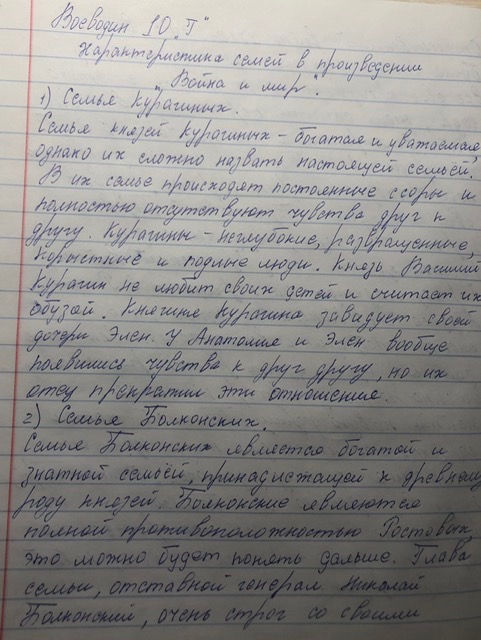 Воеводин 10 "Г"
Характеристика семей в произведении
"Война и мир".
1) Семья Курагиных.
Семья князей Курагиных - богатая и уважаемая,
однако их сложно назвать настоящей семьёй.
В их семье происходят постоянные ссоры и
полностью отсутствуют чувства друг к
другу. Курагины - неглубокие, развращенные,
корыстные и подлые люди. Князь Василий
Курагин не любит своих детей и считает их
обузой. Княгиня Курагина завидует своей
дочери Элен. У Анатолия и Элен вообще
появились чувства к друг другу, но их
отец прекратил эти отношения.
2) Семья Болконских.
Семья Болконских является богатой и
знатной семьёй, принадлежащей к древнему
роду князей. Болконские являются
полной противоположностью Ростовых,
это можно будет понять дальше. Глава
семьи, отставной генерал Николай
Болконский, очень строг со своими